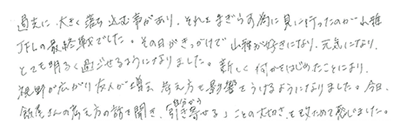 過去に大きく落ち込む事があり、それをまぎらす為に見に行ったのが山雅
JFLの最終戦でした。その日がきっかけで山雅が好きになり、元気になり、
とても明るく過ごせるようになりました。新しく何かをはじめたことにより、
視野が広がり友人が増え、考え方も影響でうけるようになりました。今日、
飯尾さんの考え方の話を聞き、「自分から引き寄せる」ことの大切さを改めて感じました。